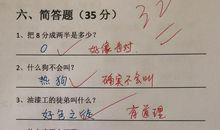 六、简答题（35 分）
32
1、把 8 分成两半是多少？
0 好像也对
2、什么狗不会叫？
热狗 确实不会叫
3、油漆工的徒弟叫什么？
好色之徒 有道理